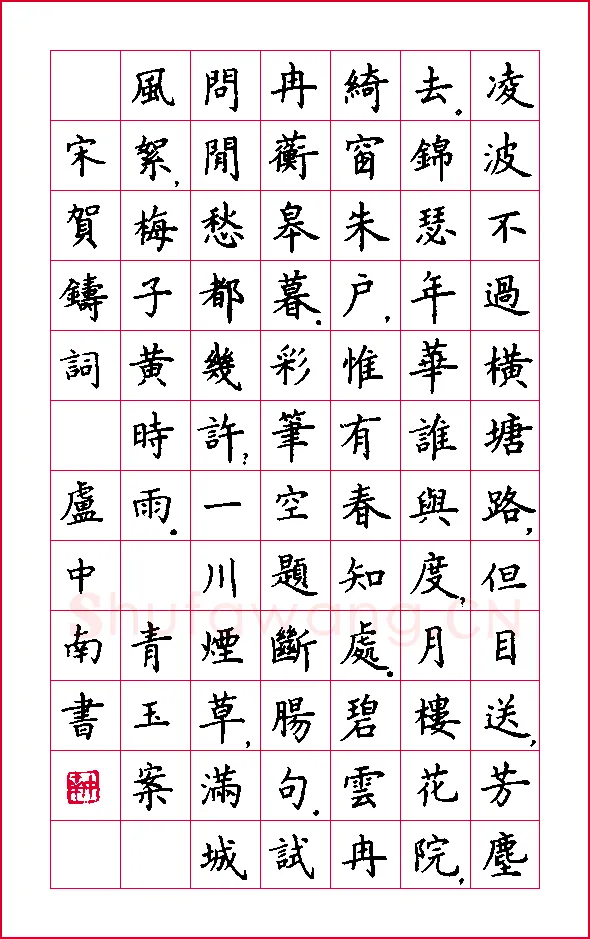 凌波不過橫塘路,但目送,芳塵
去。錦瑟年華誰與度,月樓花院,
綺窗朱户,惟有春知處。碧雲冉
冉蘅皋暮。彩筆空題斷腸句。試
問閒愁都幾許?一川煙草,滿城
風絮,梅子黄時雨。 青玉案
宋賀鑄詞 盧中南書
Shufawang.CN